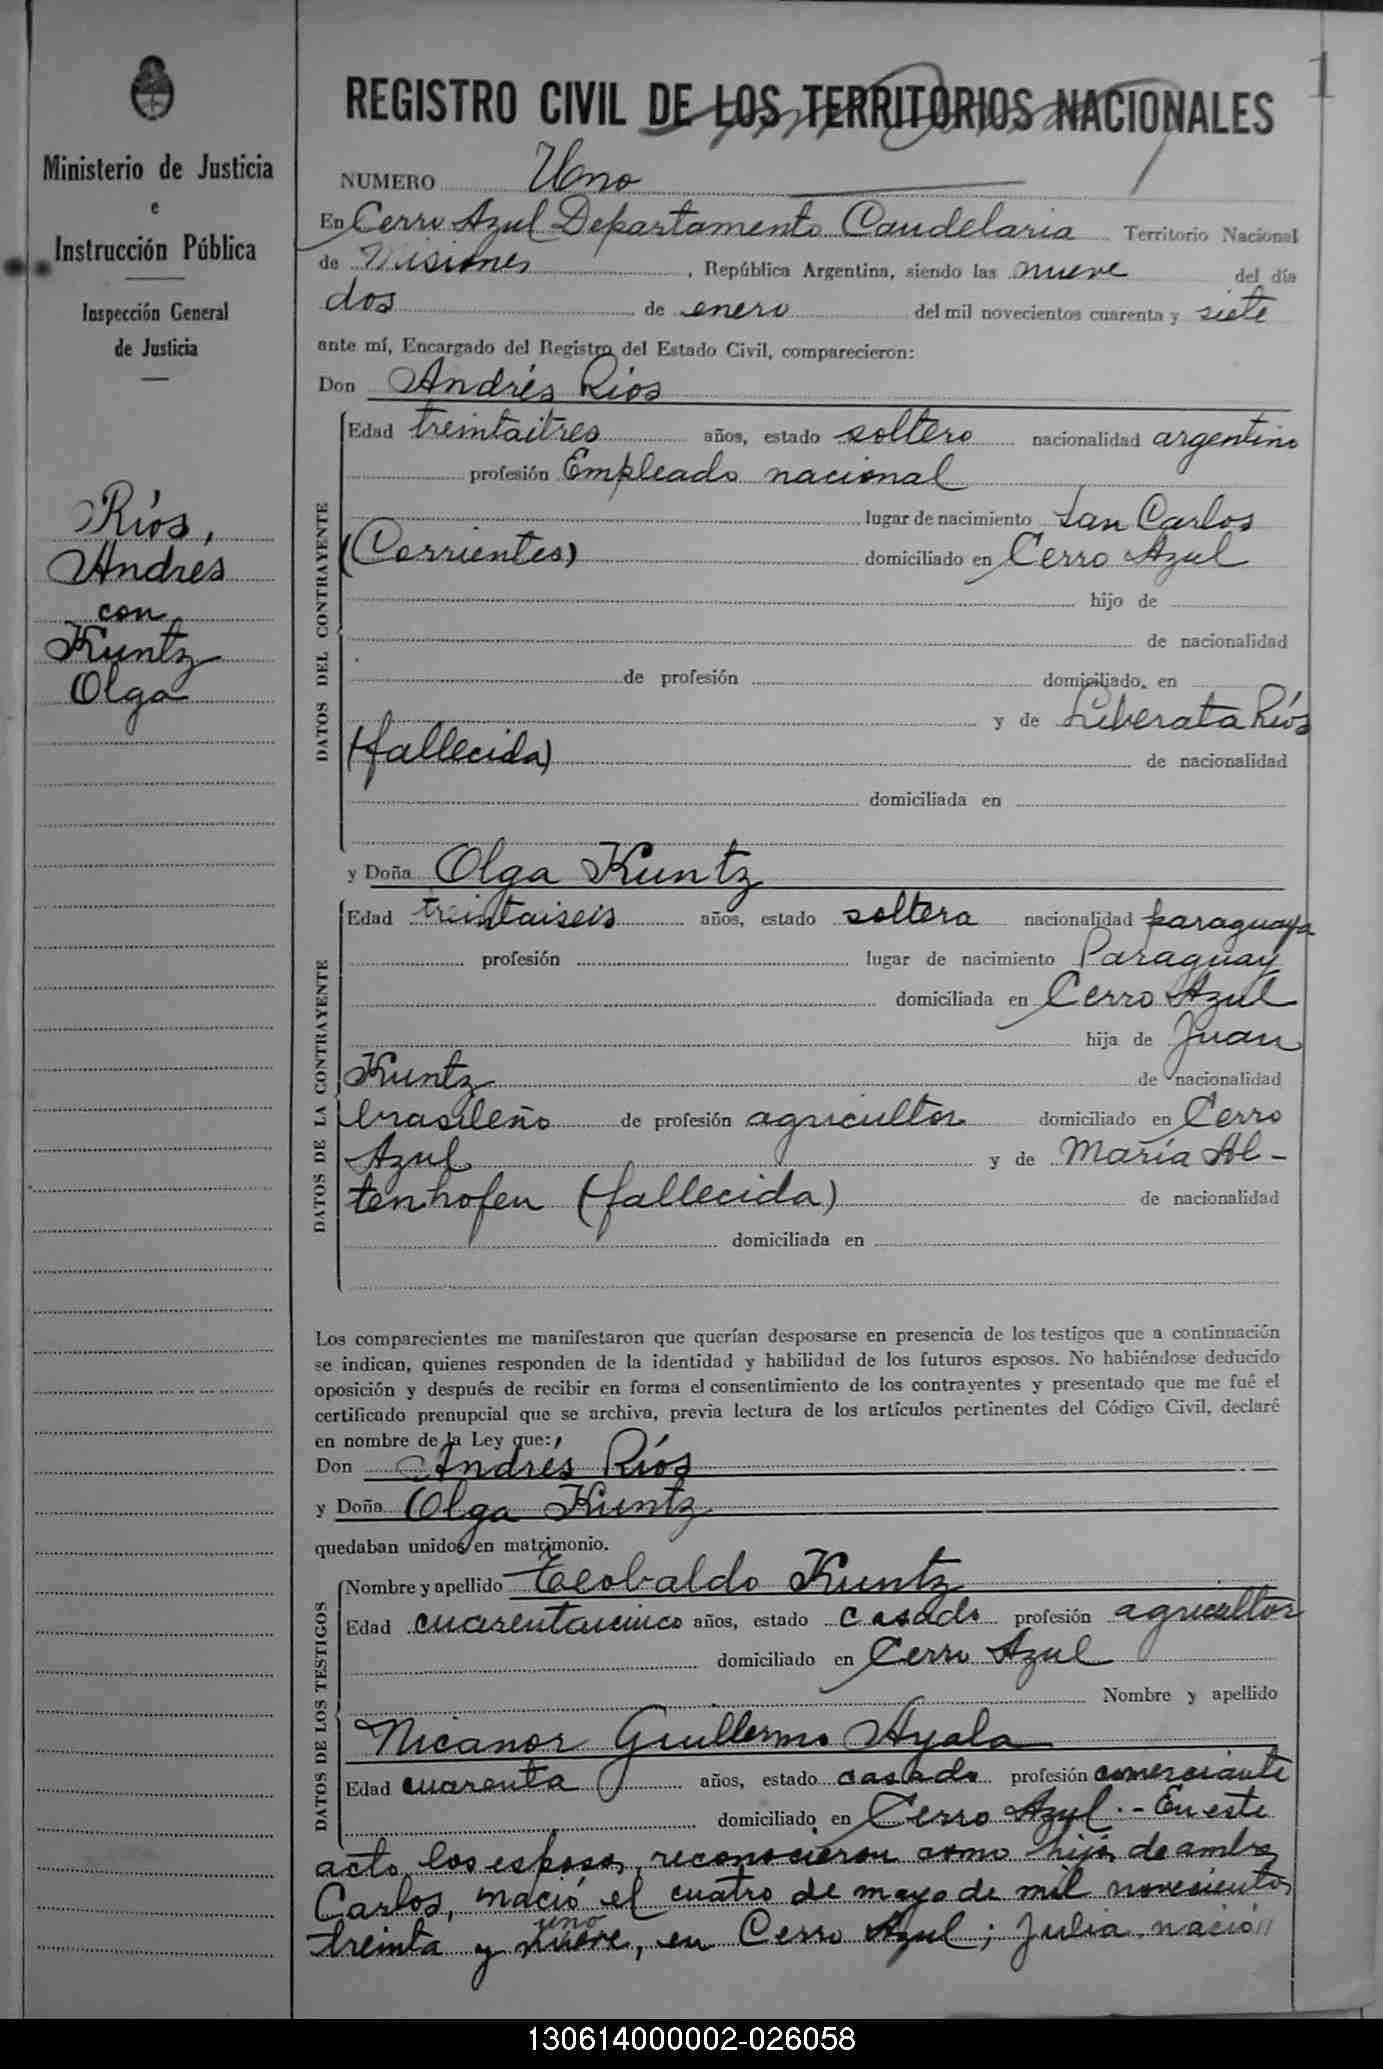 1
REGISTRO CIVIL DE LOS TERRITORIOS NACIONALES
Ministerio de Justicia
e
Instrucción Pública
Inspección General
de Justicia
Ríos,
Andres
con
Kuntz
Olga
NUMERO Uno
En Cerro Azul Departamento Candelaria Territorio Nacional
de Misiones, República Argentina, siendo las nueve del día
dos de enero del mil novecientos cuarenta y siete
ante mí, Encargado del Registro del Estado Civil, comparecieron:
Don Andrés Ríos
DATOS DEL CONTRAYENTE
Edad treintaitres años, estado soltero nacionalidad argentino
profesión Empleado nacional
lugar de nacimiento San Carlos
(Corrientes) domiciliado en Cerro Azul
hijo de
de nacionalidad
de profesión domiciliado en
y de Liberata Ríos
(fallecida) de nacionalidad
domiciliada en
y Doña Olga Kuntz
DATOS DE LA CONTRAYENTE
Edad treintaiseis años, estado soltera nacionalidad paraguaya
profesión lugar de nacimiento Paraguay
domiciliada en Cerro Azul
hija de Juan
Kuntz de nacionalidad
brasileño de profesión agricultor domiciliado en Cerro
Azul y de María Al-
tenhofen (fallecida) de nacionalidad
domiciliada en
Los comparecientes me manifestaron que querían desposarse en presencia de los testigos que a continuación
se indican, quienes responden de la identidad y habilidad de los futuros esposos. No habiéndose deducido
oposición y después de recibir en forma el consentimiento de los contrayentes y presentado que me fué el
certificado prenupcial que se archiva, previa lectura de los artículos pertinentes del Código Civil, declaré
en nombre de la Ley que:
Don Andrés Ríos
y Doña Olga Kuntz
quedaban unidos en matrimonio.
DATOS DE LOS TESTIGOS
Nombre y apellido Teobaldo Kuntz
Edad cuarentaicinco años, estado casado profesión agricultor
domiciliado en Cerro Azul
Nombre y apellido
Nicanor Guillermo Ayala
Edad cuarenta años, estado casado profesión comerciante
domiciliado en Cerro Azul.- En este
acto los esposos, reconocieron como hijos de ambos
Carlos, nació el cuatro de mayo de mil novecientos
uno
treinta y nueve, en Cerro Azul; Julia, nació
130614000002-026058